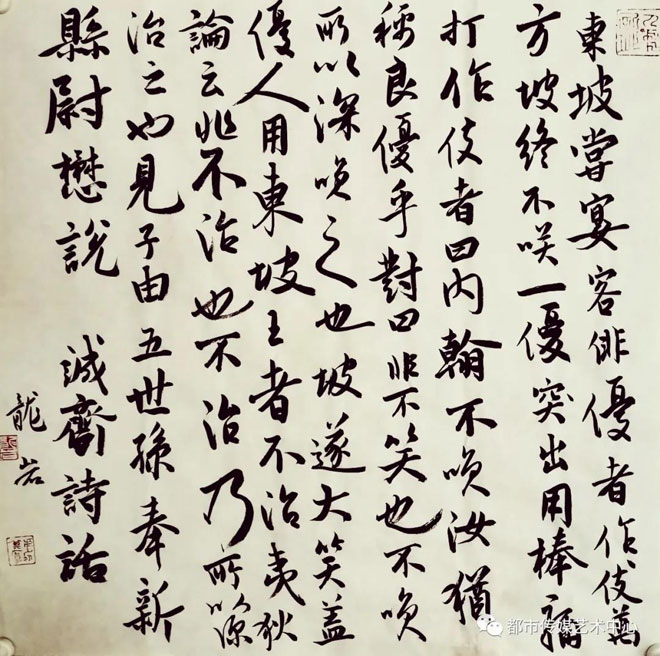 東坡嘗宴客俳優者作伎萬
方坡終不咲一優突出用棒痛
打作伎者曰内翰不咲汝猶
稱良優乎對曰非不笑也不咲
所以深咲之也坡遂大笑蓋
優人用東坡王者不治夷狄
論云非不治也不治乃所以深
治之也見子由五世孫奉新
縣尉懋說 誠齋詩話
龍岩
都市传媒艺术中心